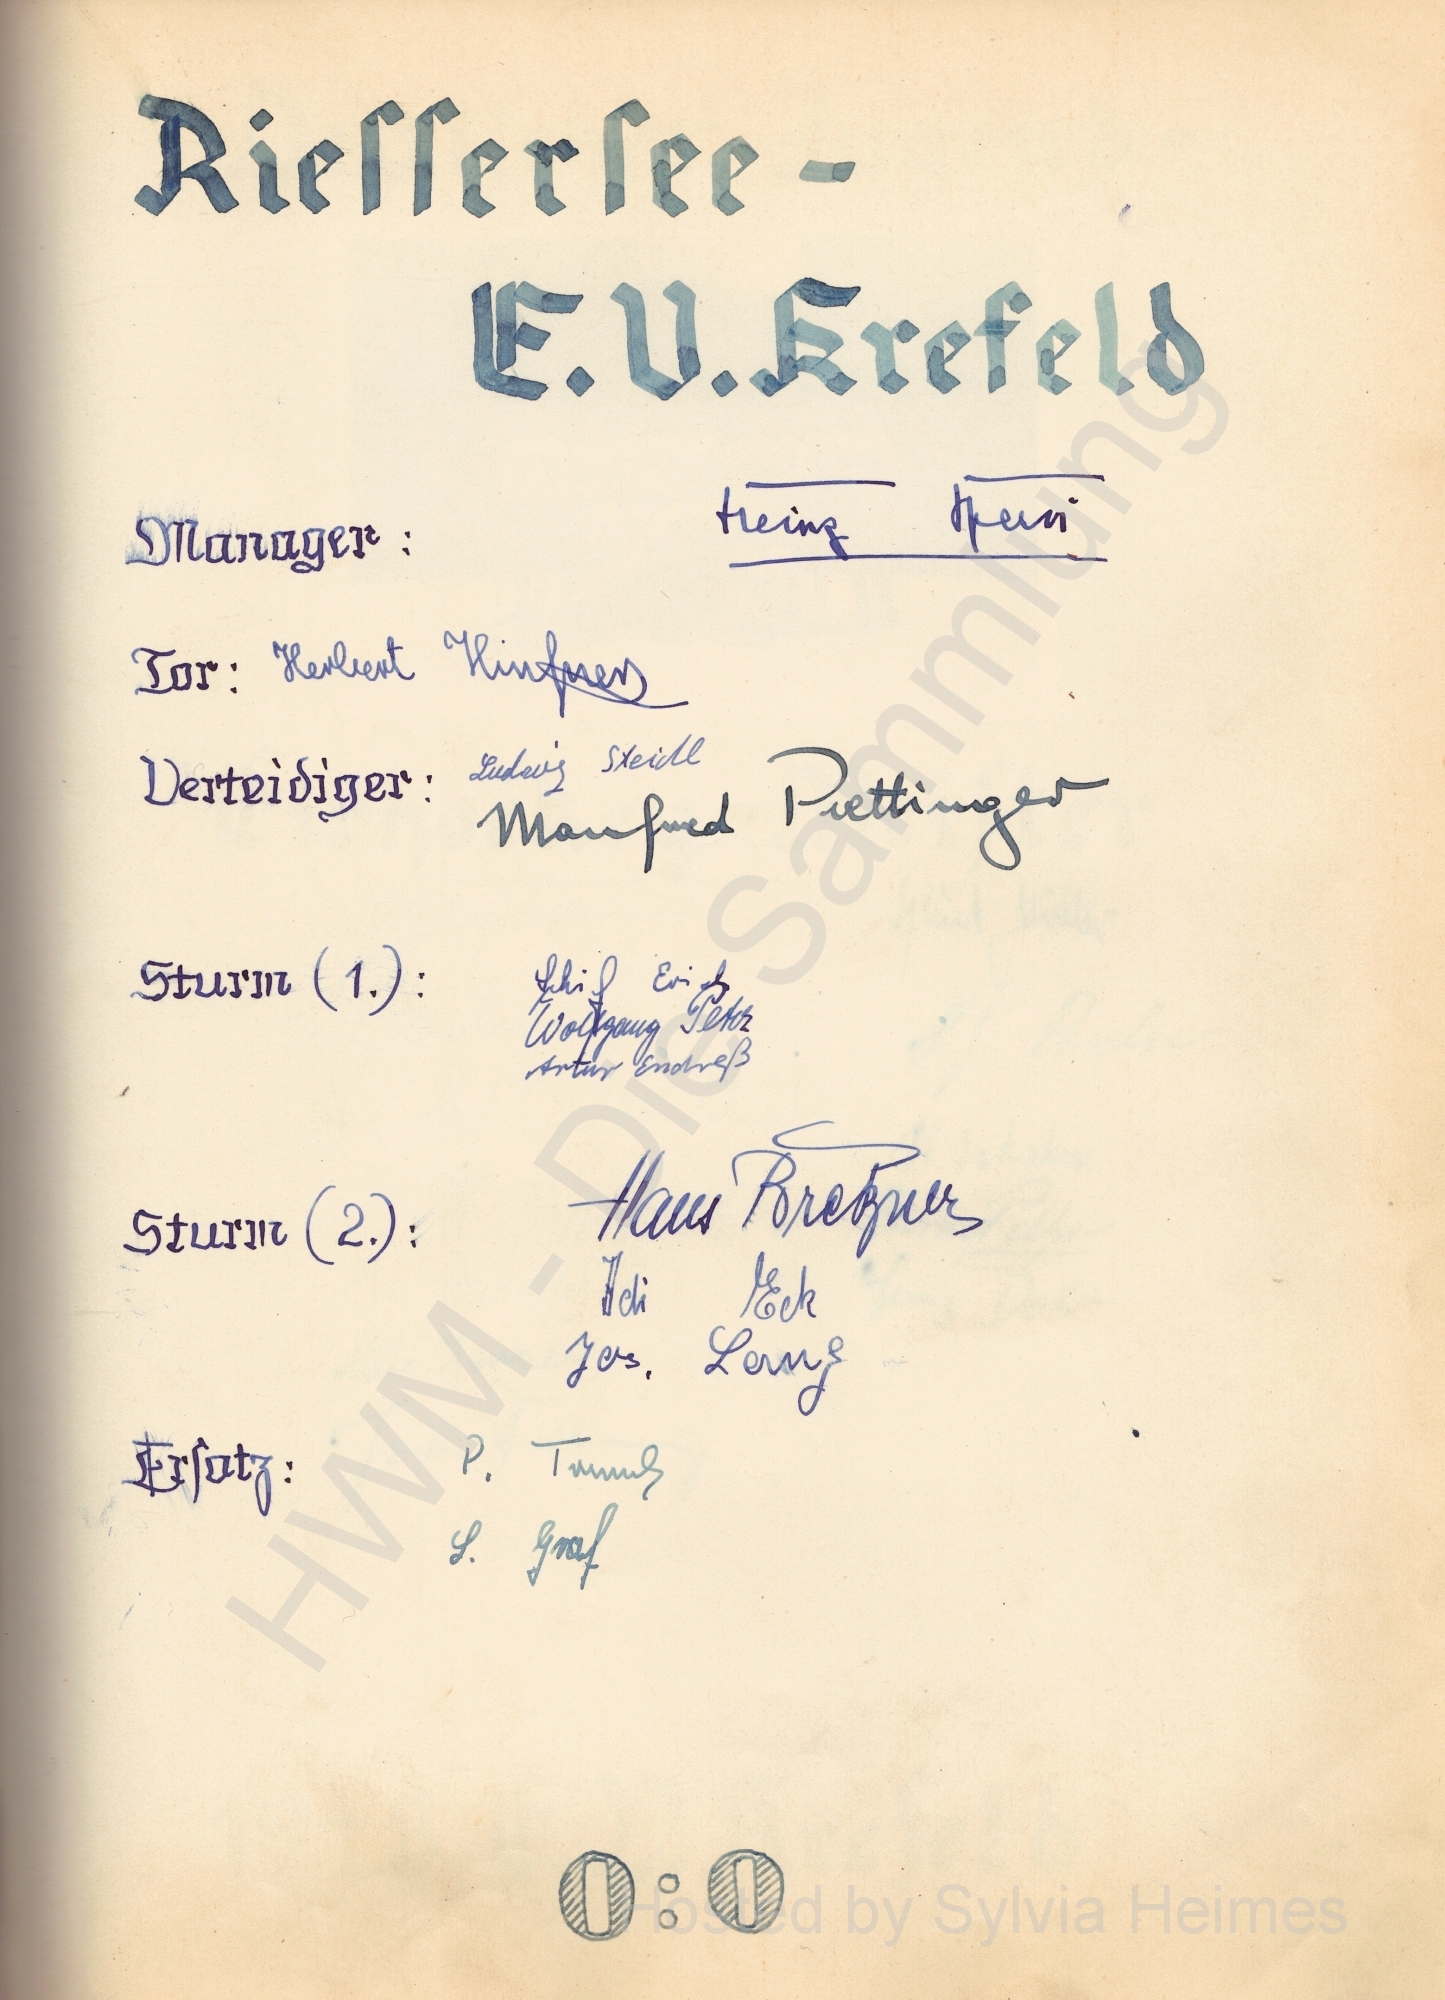 Riessersee -
E.V. Krefeld
Manager: Heinz
Tor: Herbert
Verteidiger: Ludwig Steidl
Manfred Paettinger
Sturm (1.): Erich
Wolfgang Peter
Artur Endreß
Sturm (2.): Hans Bretzner
Adi Eck
Jos. Lang
Ersatz: P. Trumch
L. Graf
0:0
HWM - Die Sammlung
Hosted by Sylvia Heimes